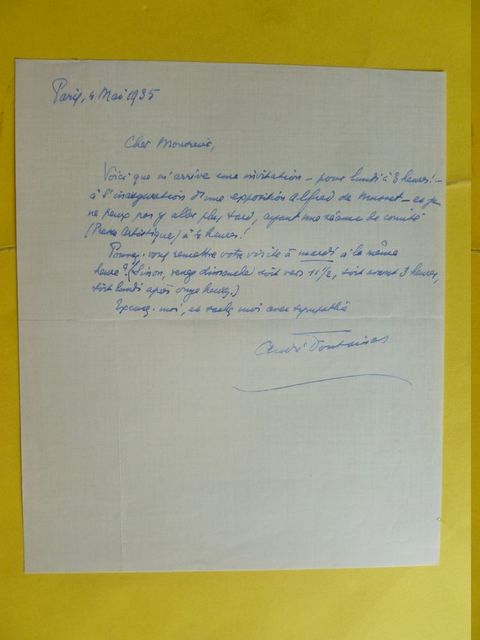 Paris, 4 Mai 1935
Cher Monsieur,
Voici que m'arrive une invitation – pour lundi à 3 heures! –
à l'inauguration d'une exposition Alfred de Musset – et je
ne peux pas y aller plus tard, ayant une séance de comité
(Presse Artistique) à 4 heures!
Pouvez-vous remettre votre visite à mardi à la même
heure? (Sinon, venez dimanche, soit vers 11 1/2, soit avant 3 heures,
soit lundi après onze heures.)
Excusez-moi, et sachez moi avec sympathie
André Fontainas